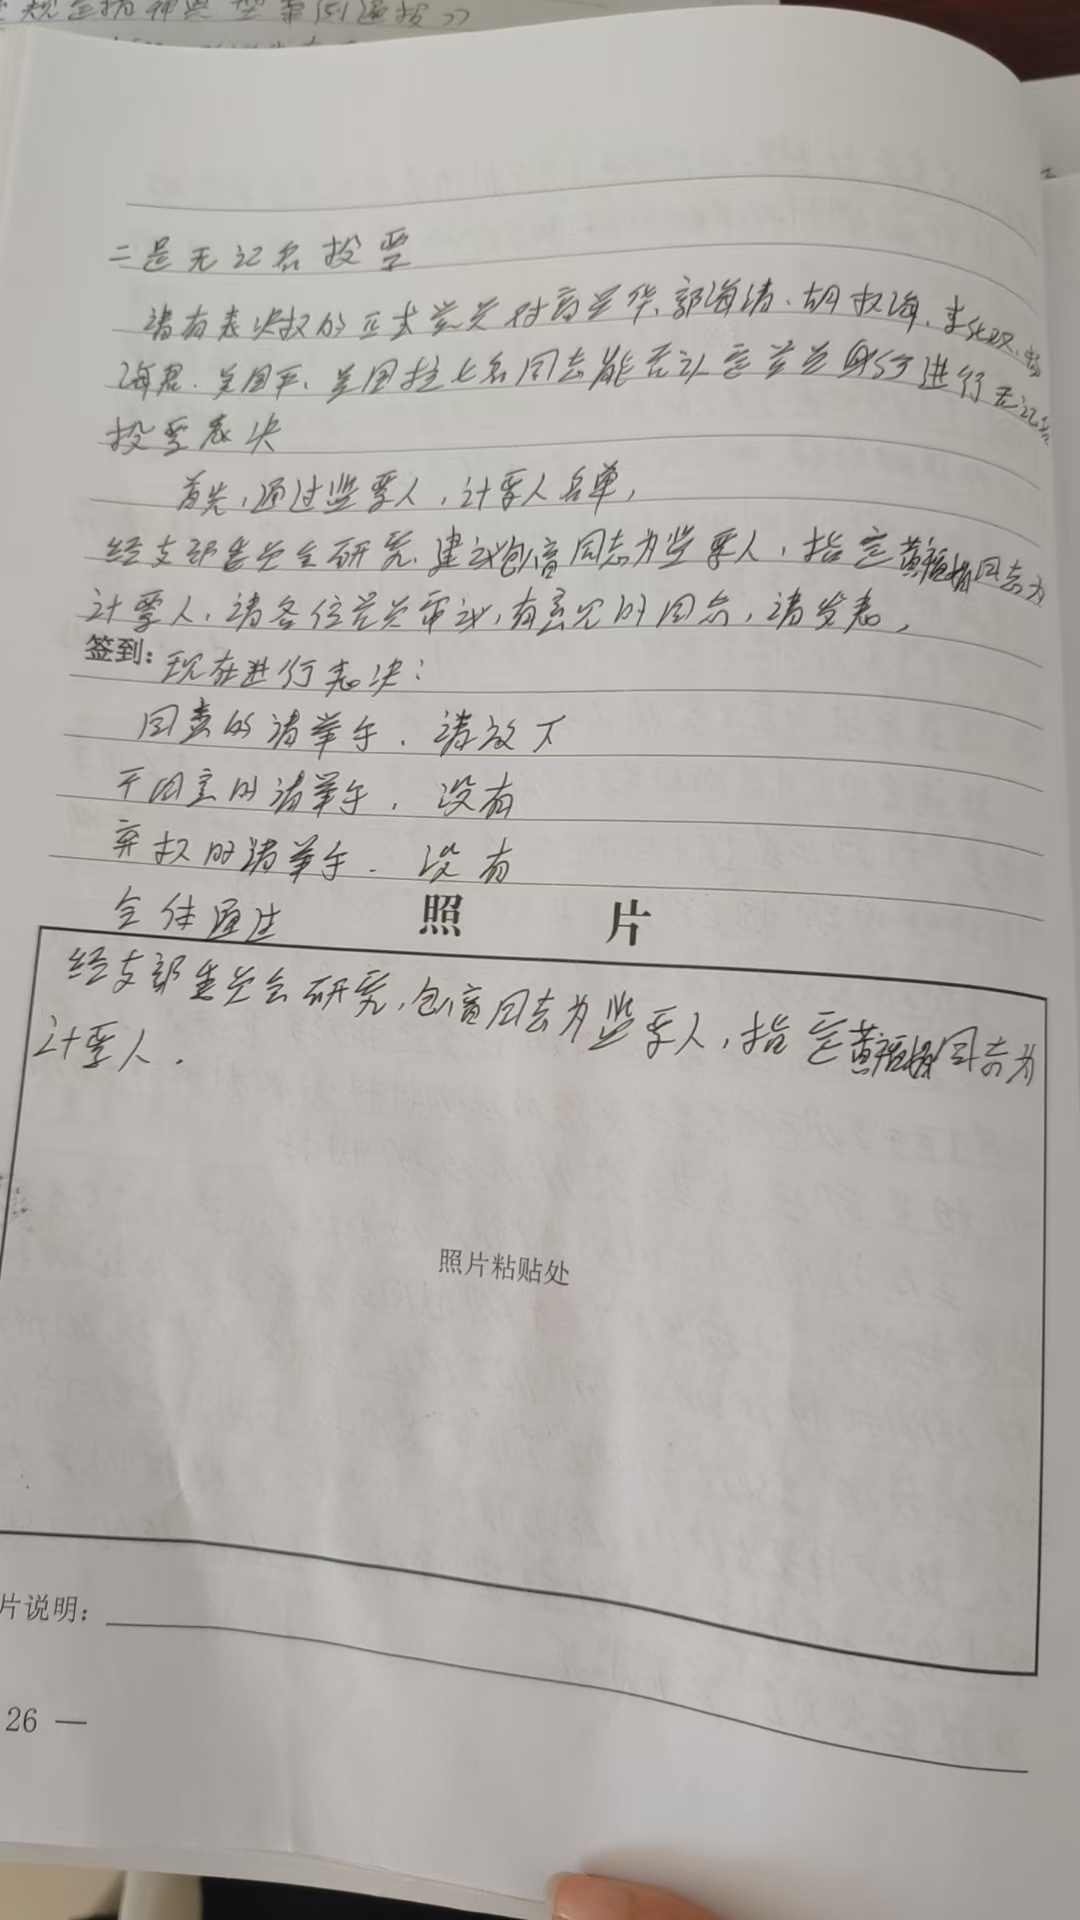 规定精神典型案例通报》
二是无记名投票
请有表决权的正式党员对高兰华、郭海清、胡权海、李化双、
海君、吴国平、吴国柱七名同志能否认定党员身份进行无记名
投票表决
首先,通过监票人,计票人名单,
经支部委员会研究,建议包富同志为监票人,指定黄福娟同志为
计票人,请各位党员审议,有意见的同志,请发表,
签到: 现在进行表决:
同意的请举手. 请放下
不同意的请举手. 没有
弃权的请举手. 没有
全体通过
照 片
经支部委员会研究,包富同志为监票人,指定黄福娟同志为
计票人.
照片粘贴处
片说明:
26 —